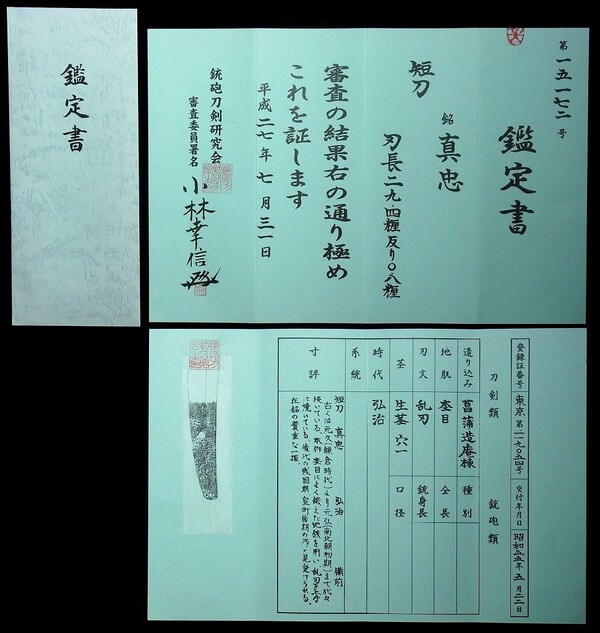 鑑定書
第一五一七二号
鑑定書
短刀 銘 真忠
刃長二九.四糎反り〇.八糎
審査の結果右の通り極め
これを証します
平成二七年七月三一日
銃砲刀剣研究会
審査委員署名
小林幸信
登録証番号 東京 第二一九〇五四号 交付年月日 昭和五五年五月二二日
刀剣類 銃砲類
造り込み 菖蒲造庵棟 種別
地肌 杢目 全長
刃文 乱刃 銃身長
茎 生茎 穴一 口径
時代 弘治
系統
寸評
短刀 真忠 弘治 備前
古くは元久(鎌倉時代)より元弘(南北朝初期)まで代々
続いている。本作 杢目によく鍛えた地鉄を用い 乱刃を上手
に焼いている。後代の戦国期 室町後期の作と見受けられる。
在銘の貴重な一振。